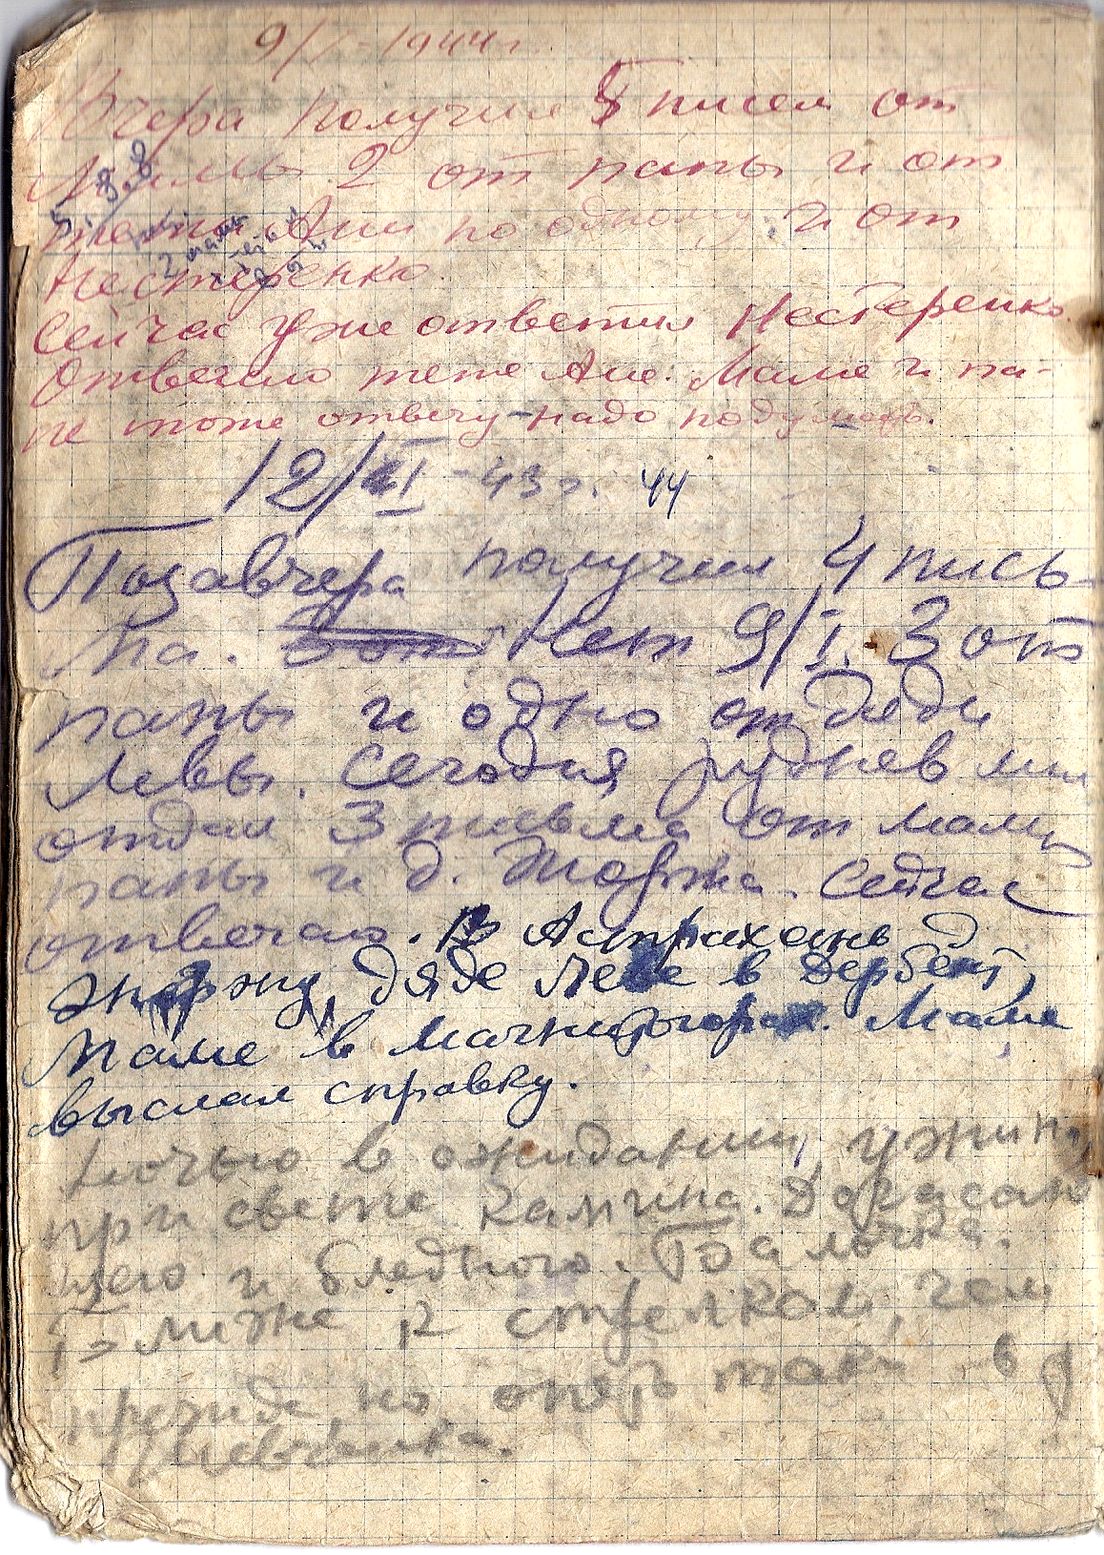 9/I-1944 г.
Вчера получил 5 писем от
Мамы 2 от папы и от
тети Ани по одному и от
Нестеренко.
Сейчас уже ответил Нестеренко.
Отвечаю тете Ане. Маме и па-
пе тоже отвечу - надо подумать.
12/I - 43 г. 44
Позавчера получил 4 пись-
ма. Нет 9/I. 3 от
папы и одно от дяди
Левы. Сегодня Руднев мне
отдал 3 письма от мамы
папы и д. Жоржа. Сейчас
отвечаю. В Астрахань д
Жоржу, дяде Леве в Дербент,
Маме в Магнитогорск. Маме
выслал справку.
Ночью в ожидании ужина
при свете камина. Догасаю
щего и бледного. Балочка.
Ближе к стрелкам, чем
прежде, но опять таки в